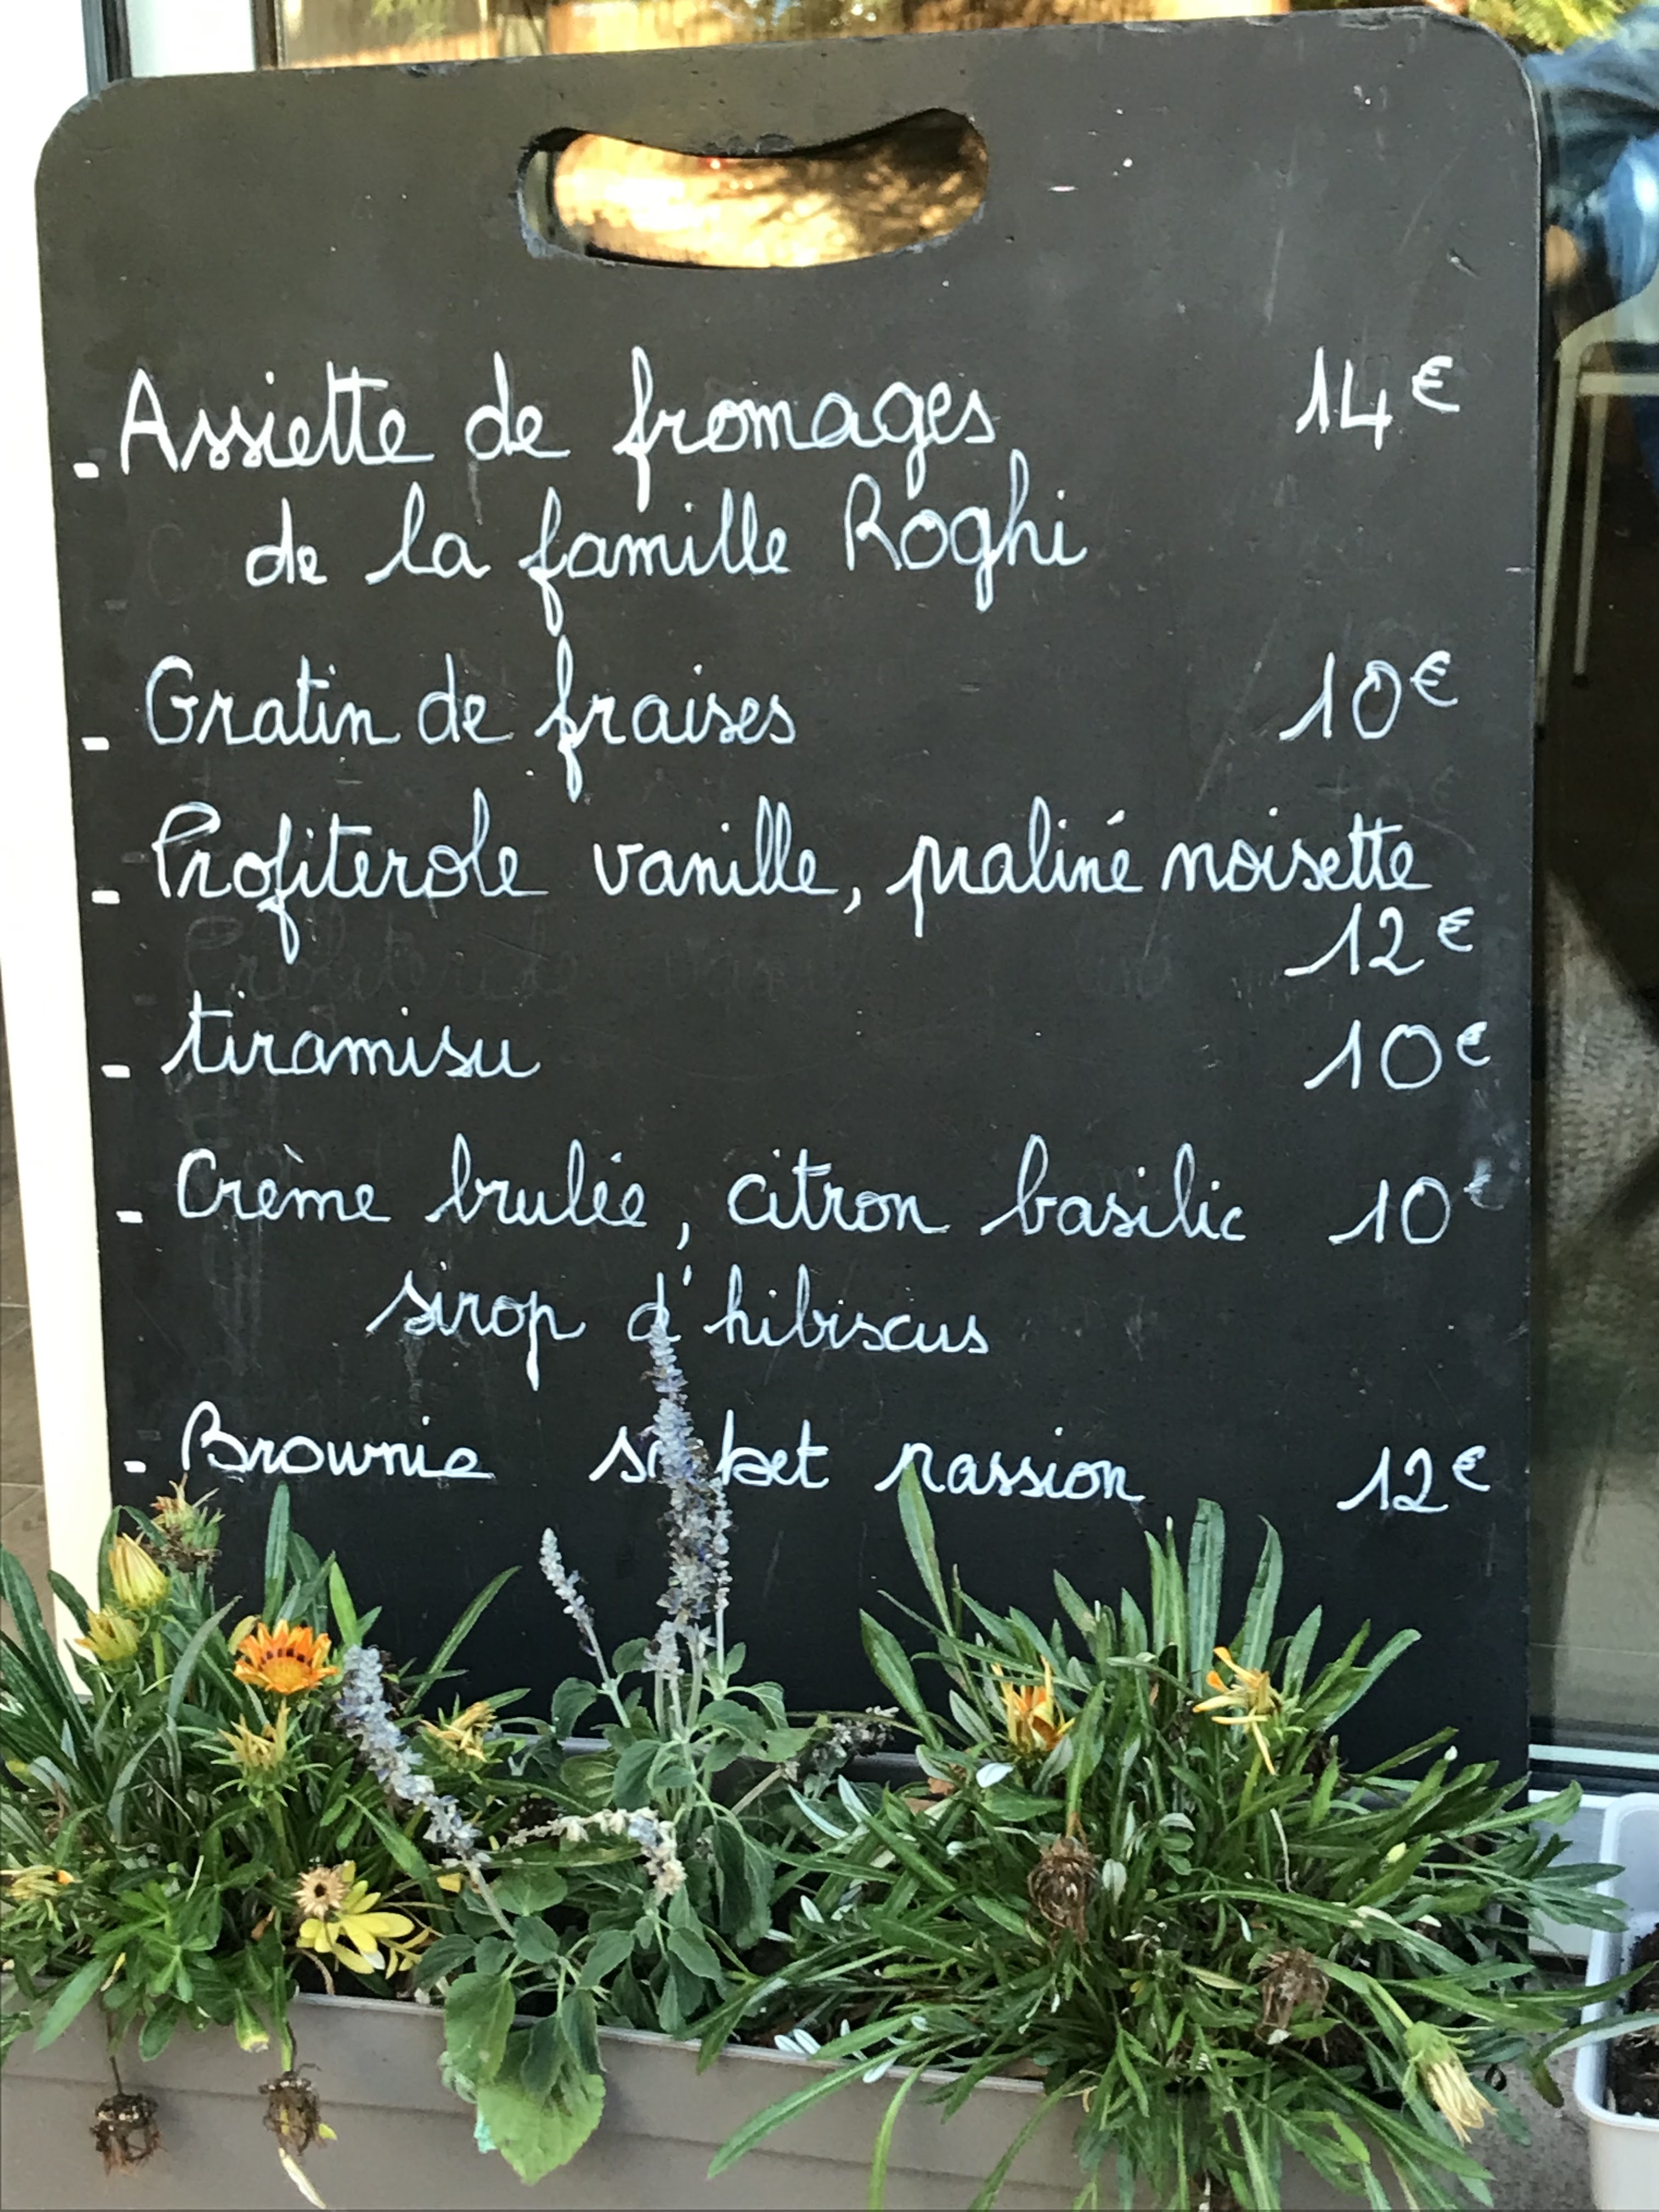 - Assiette de fromages 14€
de la famille Roghi
- Gratin de fraises 10€
- Profiterole vanille, praliné noisette
12€
- tiramisu 10€
- Crème brulée, citron basilic 10€
sirop d'hibiscus
- Brownie sorbet passion 12€